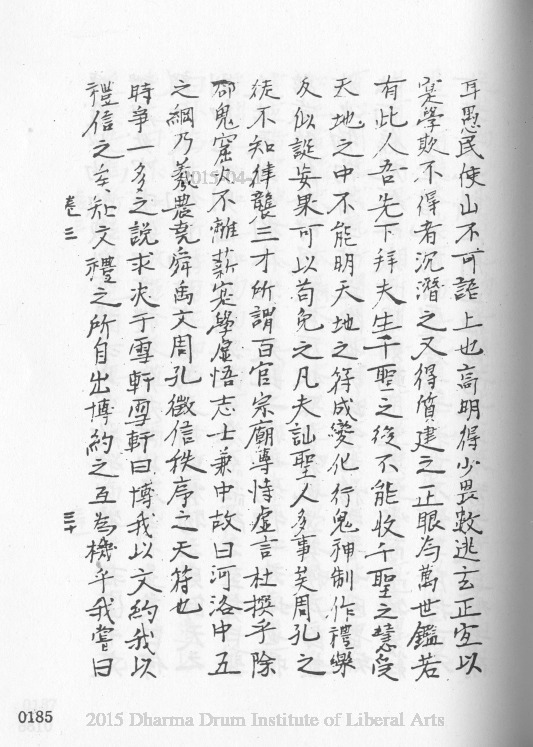 耳愚民使山不可語上也高明得少畏數逃玄正宜以
實學欺不得者沉潛之又得質建之正眼為萬世鑑若
有此人吾先下拜夫生千聖之後不能收千聖之慧受
天地之中不能明天地之符成變化行鬼神制作禮樂
反似誕妄果可以苟免之凡夫訕聖人多事芙周孔之
徒不知律襲三才所謂百官宗廟專恃虛言杜撰乎除
卻鬼窟火不離薪寔學虛悟志士兼中故曰河洛中五
之綱乃羲農堯舜禹文周孔徵信秩序之天符也
時爭一多之說求决于雪軒雪軒曰博我以文約我以
禮信之矣知文禮之所自出博約之互為機乎我嘗曰
卷三
三十
0185
2015 Dharma Drum Institute of Liberal Arts